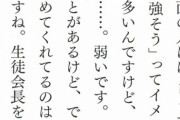 の人に
強そう」ってイメ
多いんですけど、
……。弱いです。
とがあるけど、で
めてくれてるのは
すね。生徒会長を